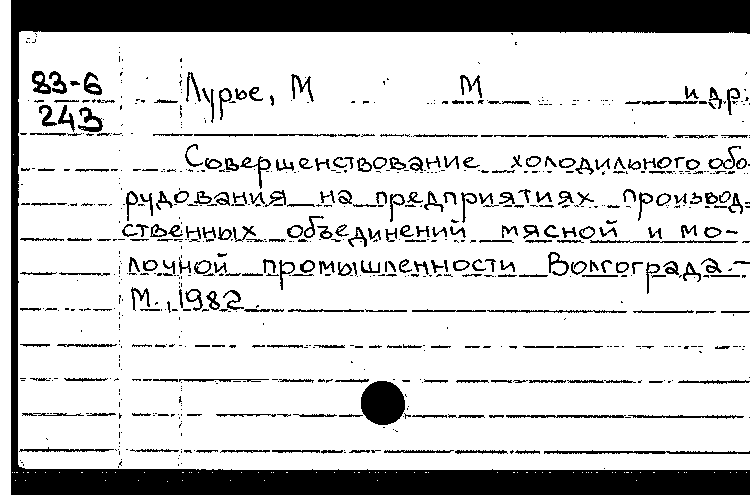 83-6
243
Лурье, М М и др.
Совершенствование холодильного обо-
рудования на предприятиях производ-
ственных объединений мясной и мо-
лочной промышленности Волгограда.-
М., 1982.